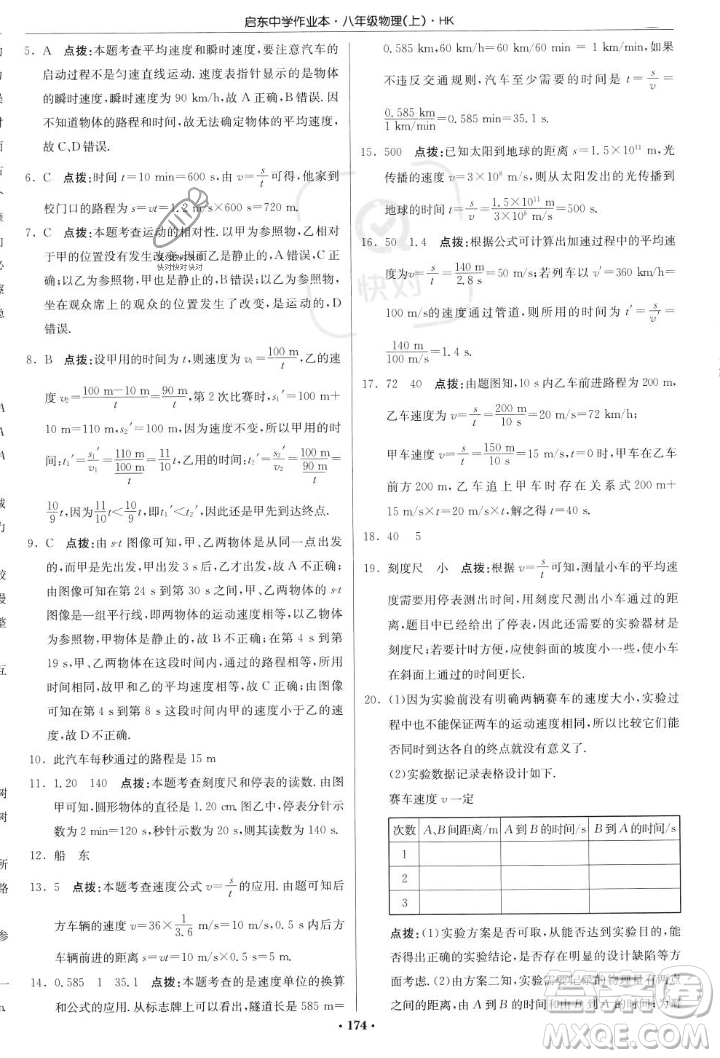 启东中学作业本·八年级物理(上)·HK
5. A 点拨:本题考查平均速度和瞬时速度.要注意汽车的
启动过程不是匀速直线运动.速度表指针显示的是物体
的瞬时速度,为 90 km/h,故 A 正确,B 错误.因
不知道物体的路程和时间,故无法确定物体的平均速度,
故 C、D 错误.
6. C 点拨:时间 t=10 min=600 s,由 v=s/t 得,从他家到
校门口的路程为 s=vt=1.2 m/s×600 s=720 m.
7. C 点拨:本题考查运动的相对性.以甲为参照物,乙相对
于甲的位置没有发生改变,因而乙是静止的,A、C
错误;以乙为参照物,甲是静止的,B 错误;以甲为参照物,
坐在观众席上的观众的位置发生了改变,是运动的,D
错误.
8. B 点拨:设甲用的时间为 t,则甲的速度 v₁=100 m/t,乙的速
度 v₂=(100 m−10 m)/t=90 m/t,第 2 次比赛时,s₁′=100 m+
10 m=110 m,s₂′=100 m,因为速度不变,所以甲用的时
间:t₁′=s₁′/v₁=110 m/(100 m/t)=11/10 t,乙用的时间:t₂′=s₂′/v₂=100 m/(90 m/t)=
10/9 t,因为 11/10 t<10/9 t,即 t₁′<t₂′,所以还是甲先到达终点.
9. C 点拨:由 s-t 图像可知,甲、乙两物体是从同一点出发
的,而且甲是先出发,
为参照物,甲物体是静止的,
19 s,甲和乙两物体
10. 此汽车每秒通过的路程是 15 m
11. 1.20 140 点拨:本题考查刻度尺和停表的读数.由图
甲可知,圆形物体的直径是 1.20 cm.图乙中,分针示数
为 2 min=120 s,秒针示数为 20 s,故停表的读数为 140 s.
12. 船 东
13. 5 点拨:本题考查速度公式 v=s/t 的应用.由题知,前后
方车辆的速度 v=36×1/3.6 m/s=10 m/s,0.5 s 内后
方车辆运动的路程 s=vt=10 m/s×0.5 s=5 m.
14. 0.585 1 35.1 点拨:本题考查的是速度单位的换算
和公式的应用.从标志牌上可以看出,隧道长是 585 m=
0.585 km,
不违反交通规则,汽车至少需要的时间是 t=s/v=
0.585 km/(1 km/min)=0.585 min=35.1 s.
15. 500 点拨:已知太阳到地球的距离 s=1.5×10¹¹ m,光
传播的速度 v=3×10⁸ m/s,则从太阳发出的光传播到
地球的时间 t=s/v=1.5×10¹¹ m/(3×10⁸ m/s)=500 s.
16. 50 1.4 点拨:根据公式可计算出加速过程中的平均速
度为 v=s/t=140 m/2.8 s=50 m/s;若列车以 v′=360 km/h=
100 m/s 的速度通过管道,则需要的时间为 t′=s/v′=
140/100 s=1.4 s.
17. 72 40 点拨:由题图知,10 s 内乙车前进路程为 200 m,
乙车速度为 v=s/t=200 m/10 s=20 m/s=72 km/h;
甲车速度为 v=s/t=150 m/10 s=15 m/s,t=0 时,甲车在乙车
前方 200 m,乙车追上甲车时存在关系式 200 m+
15 m/s×t=20 m/s×t,解得 t=40 s.
18. 40 5
19. 刻度尺 小 点拨:根据 v=s/t 可知,测量小车的平均速
度需要用停表测出时间,用刻度尺测出距离,
目中已经给出了停表,所以还需要的实验器材是
刻度尺;若要计时方便,应使斜面的坡度小一些,使小车
在斜面上运动的时间更长.
20. (1)因为实验前没有明确两辆赛车的速度大小,实验过
程中也不能保证两车的运动速度是相同的,所以方案一能
否得到所需数据就没有意义了.
(2)实验数据记录表格设计如下.
赛车速度 v 一定
次数 A、B 间距离/m A 到 B 的时间/s B 到 A 的时间/s
1
2
3
点拨:(1)实验方案是否可取,从能否得到数据,能否得
出正确的实验结论,是否存在明显的设计缺陷等方
面考虑.(2)由方案二知,需要记录的物理量有两点
之间的距离、由 A 到 B 的时间和由 B 到 A 的时间,为避
·174·
快对
快对快对快对